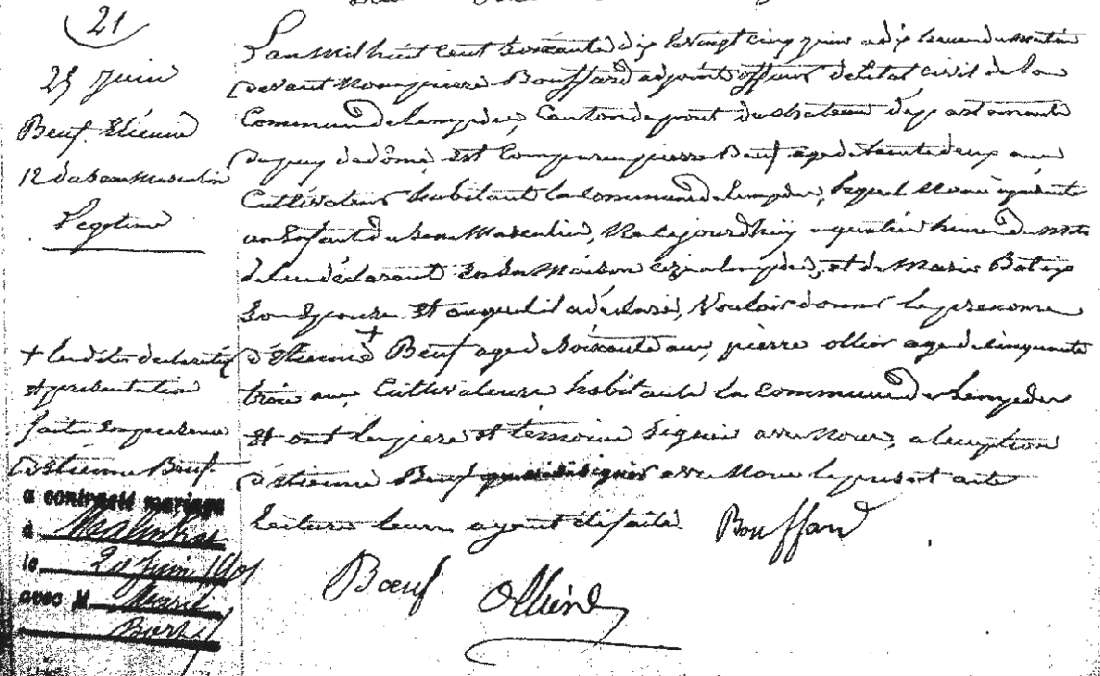 21
25 Juin
Beuf Etienne
12 du Sexe Masculin
Legetime
L'an mil huit cent soixante dix le vingt cinq juin a dix heure du matin
devant Nous pierre Bouffard adjoint officier de letat civil de la
Commune de Lempdes, Canton de pont du chateau departement
du puy de dôme, est Comparu pierre Beuf age de trente deux ans
Cultivateur habitant la commune de Lempdes, lequel Nous a présenté
un Enfant du Sexe Masculin, Né aujourdhuy a quatre heure du matin
de lui déclarant en sa Maison a Lempdes, et de Marie
Son Epouse Et auquel il a déclaré, Vouloir donner le prenome
d'Etienne + Beuf age de Soixante ans, pierre ollier age de Cinquante
trois ans, Cultivateurs habitants la Commune de Lempdes
Et ont le père et témoins Signés avec Nous, a l'exeption
d'Etienne Beuf avec Nous le present acte
Lecture leurs ayant été faite
+ Lesdites declaration
et présentation
faites En presence
d'Etienne Beuf
a contracté mariage
à
le 29 Juin 1901
avec M Marie
Bouffard
Bœuf